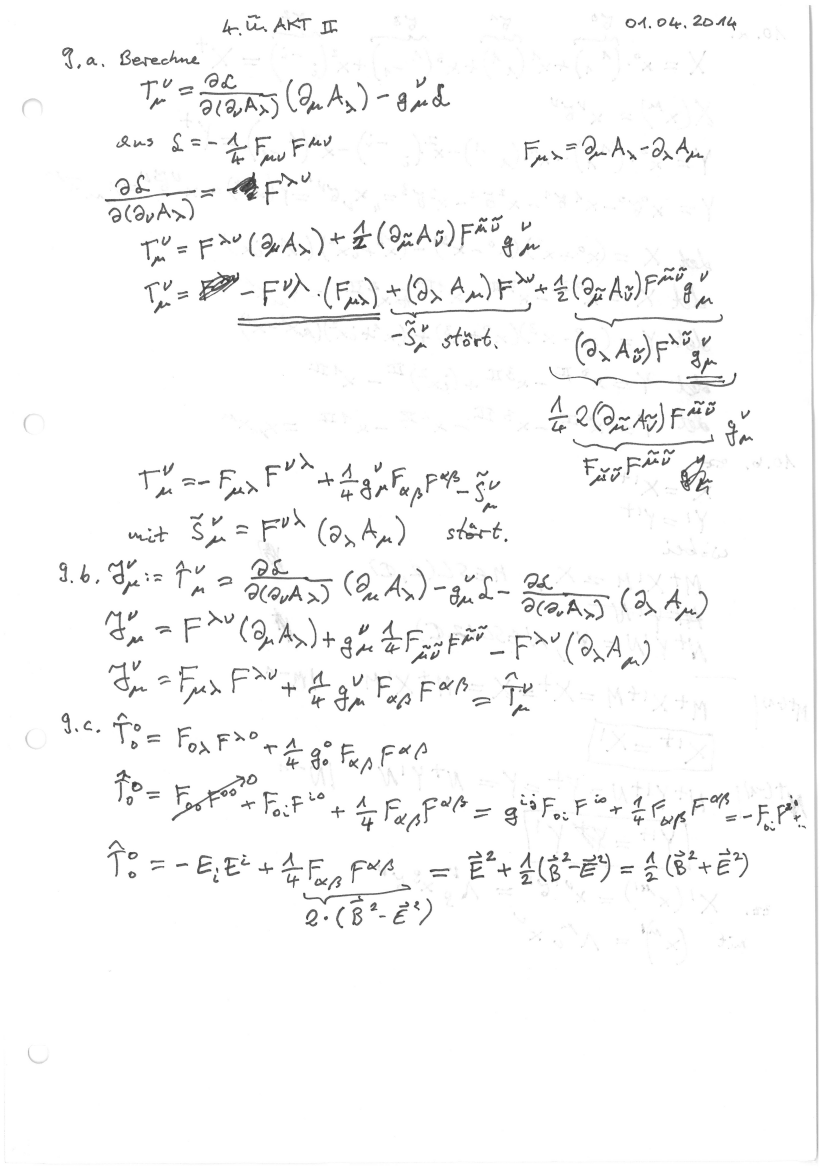 4. Ü. AKT II 01.04.2014
9.a. Berechne
T_μ^ν = ∂ℒ/∂(∂_ν A_λ) (∂_μ A_λ) - g_μ^ν ℒ
aus ℒ = - 1/4 F_μν F^μν F_μλ = ∂_μ A_λ - ∂_λ A_μ
∂ℒ/∂(∂_ν A_λ) = F^λν
T_μ^ν = F^λν (∂_μ A_λ) + 1/2 (∂_μ̃ A_ν̃) F^μ̃ν̃ g_μ^ν
T_μ^ν = - F^νλ · (F_μλ) + (∂_λ A_μ) F^λν + 1/2 (∂_μ̃ A_ν̃) F^μ̃ν̃ g_μ^ν
-S̃_μ^ν stört. (∂_λ A_ν̃) F^λν̃ g_μ^ν
1/4 2 (∂_μ̃ A_ν̃) F^μ̃ν̃ g_μ^ν
F_μ̃ν̃ F^μ̃ν̃
T_μ^ν = - F_μλ F^νλ + 1/4 g_μ^ν F_αβ F^αβ - S̃_μ^ν
mit S̃_μ^ν = F^νλ (∂_λ A_μ) stört.
9.b. 𝒥_μ^ν := T̂_μ^ν = ∂ℒ/∂(∂_ν A_λ) (∂_μ A_λ) - g_μ^ν ℒ - ∂ℒ/∂(∂_ν A_λ) (∂_λ A_μ)
𝒥_μ^ν = F^λν (∂_μ A_λ) + g_μ^ν 1/4 F_μ̃ν̃ F^μ̃ν̃ - F^λν (∂_λ A_μ)
𝒥_μ^ν = F_μλ F^λν + 1/4 g_μ^ν F_αβ F^αβ = T̂_μ^ν
9.c. T̂_0^0 = F_0λ F^λ0 + 1/4 g_0^0 F_αβ F^αβ
T̂_0^0 = F_00 F^00 + F_0i F^i0 + 1/4 F_αβ F^αβ = g^ij F_0i F^i0 + 1/4 F_αβ F^αβ = - F_0i F^i0 + ..
T̂_0^0 = - E_i E^i + 1/4 F_αβ F^αβ = E⃗² + 1/2 (B⃗² - E⃗²) = 1/2 (B⃗² + E⃗²)
2 · (B⃗² - E⃗²)